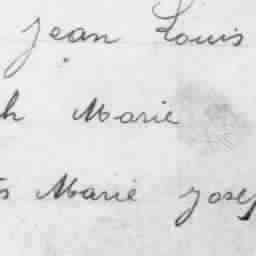 Jean Louis
h Marie
s Marie Josep